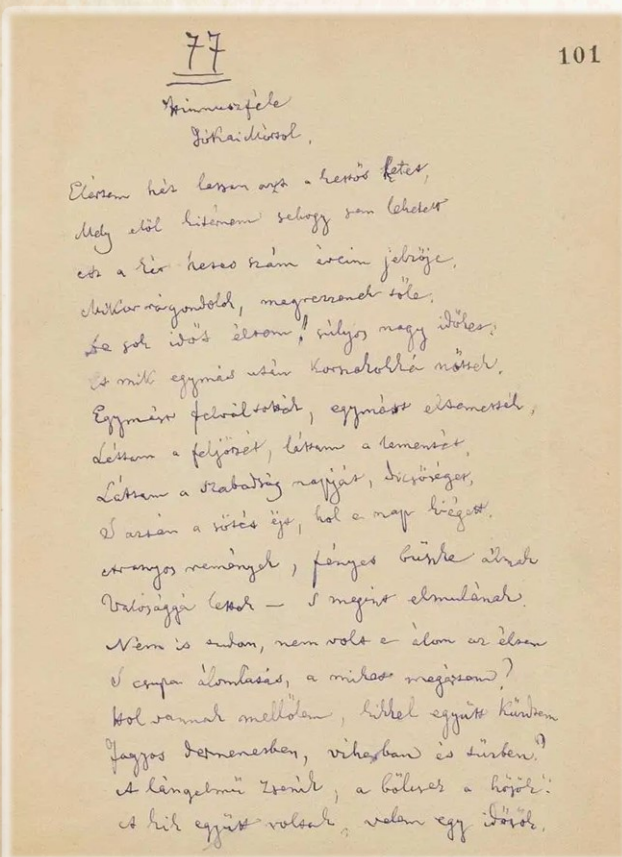 77
101
Himnuszféle
Jókai Mórtol.
Elértem hát lassan azt a kettős hetet,
Mely elöl kitérnem sehogy sem lehetett
ez a két hetes szám éveim jelzője,
Mikor rágondolok, megrezzenek tőle.
De sok időt éltem! súlyos nagy időket;
És mik egymás után korszakokká nőttek.
Egymást felváltották, egymást eltemették,
Láttam a feljöttét, láttam a lementét,
Láttam a szabadság napját, dicsőséget,
S aztán a sötét éjt, hol a nap kiégett.
Aranyos remények, fényes büszke álmak
Valósággá lettek – s megint elmulának.
Nem is tudom, nem volt e álom az éltem
S csupa álomlátás, a miket megértem?
Hol vannak mellőlem, kikkel együtt küzdtem
Fagyos dermenetben, viharban és tűzben?
A lángelmű zsenik, a bölcsek a hősök:
A kik együtt voltak velem egy idősök.